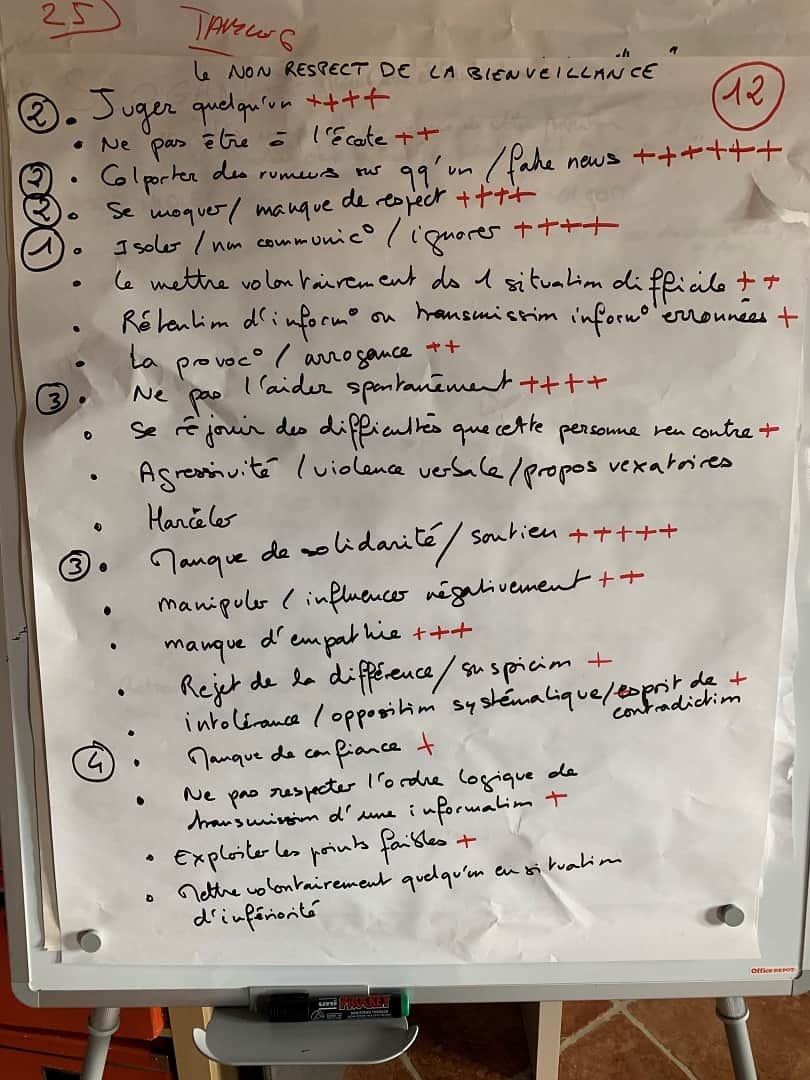 25
le NON RESPECT DE LA BIENVEILLANCE "
12
② • Juger quelqu'un ++++
• Ne pas être à l'écoute ++
② • Colporter des rumeurs sur qq'un / fake news ++++++
② • Se moquer / manque de respect ++++
① • Isoler / non communic° / ignorer ++++
• Le mettre volontairement ds 1 situation difficile ++
• Rétention d'inform° ou transmission inform° erronnées +
• La provoc° / arrogance ++
③ • Ne pas l'aider spontanément ++++
• Se réjouir des difficultés que cette personne rencontre +
• Agressivité / violence verbale / propos vexatoires
• Harceler
③ • Manque de solidarité / soutien +++++
• manipuler / influencer négativement ++
• manque d'empathie +++
• Rejet de la différence / suspicion +
• intolérance / opposition systématique / esprit de +
contradiction
④ • Manque de confiance +
• Ne pas respecter l'ordre logique de
transmission d'une information +
• Exploiter les points faibles +
• Mettre volontairement quelqu'un en situation
d'infériorité
Office DEPOT
uni PROCKEY